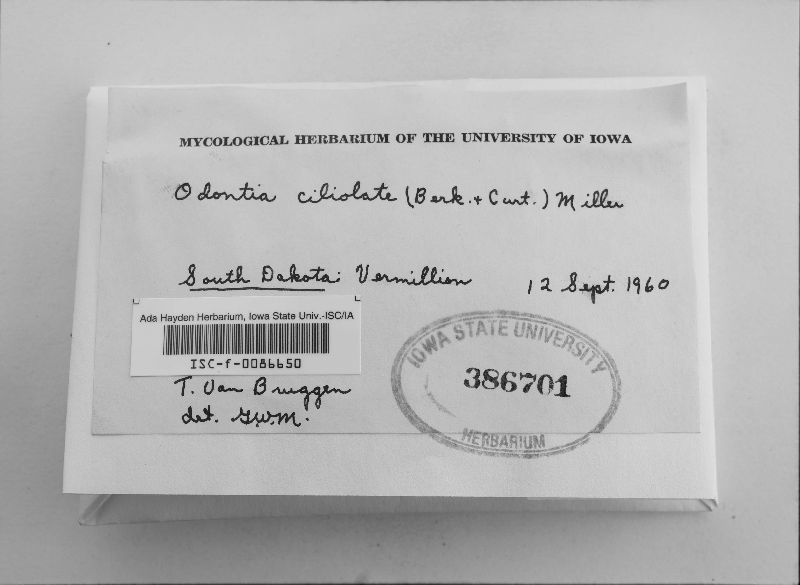 MYCOLOGICAL HERBARIUM OF THE UNIVERSITY OF IOWA
Odontia ciliolate (Berk. + Curt.) Miller
South Dakota: Vermillion 12 Sept. 1960
Ada Hayden Herbarium, Iowa State Univ.-ISC/IA
ISC-f-0086650
T. Van Bruggen
det. G.W.M.
IOWA STATE UNIVERSITY
386701
HERBARIUM